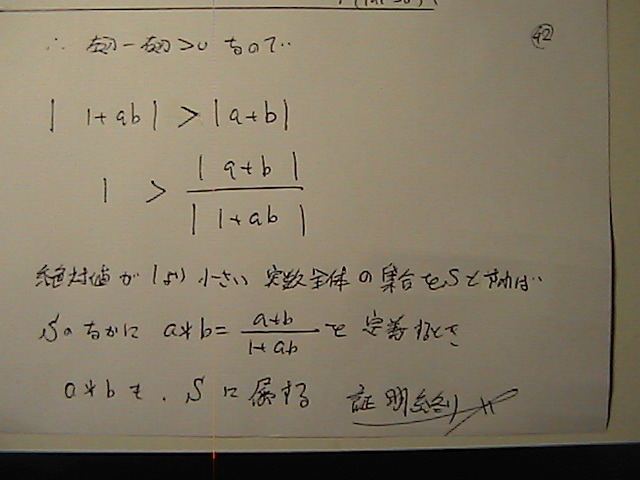 ㊷
∴ 左辺-右辺>0 なので‥
| 1+ab | > | a+b |
1 > | a+b | / | 1+ab |
絶対値が1より小さい 実数全体の集合をSとすれば‥
Sのなかに a*b= a+b / 1+ab を 定義するとき
a*bも、Sに属する 証明終り